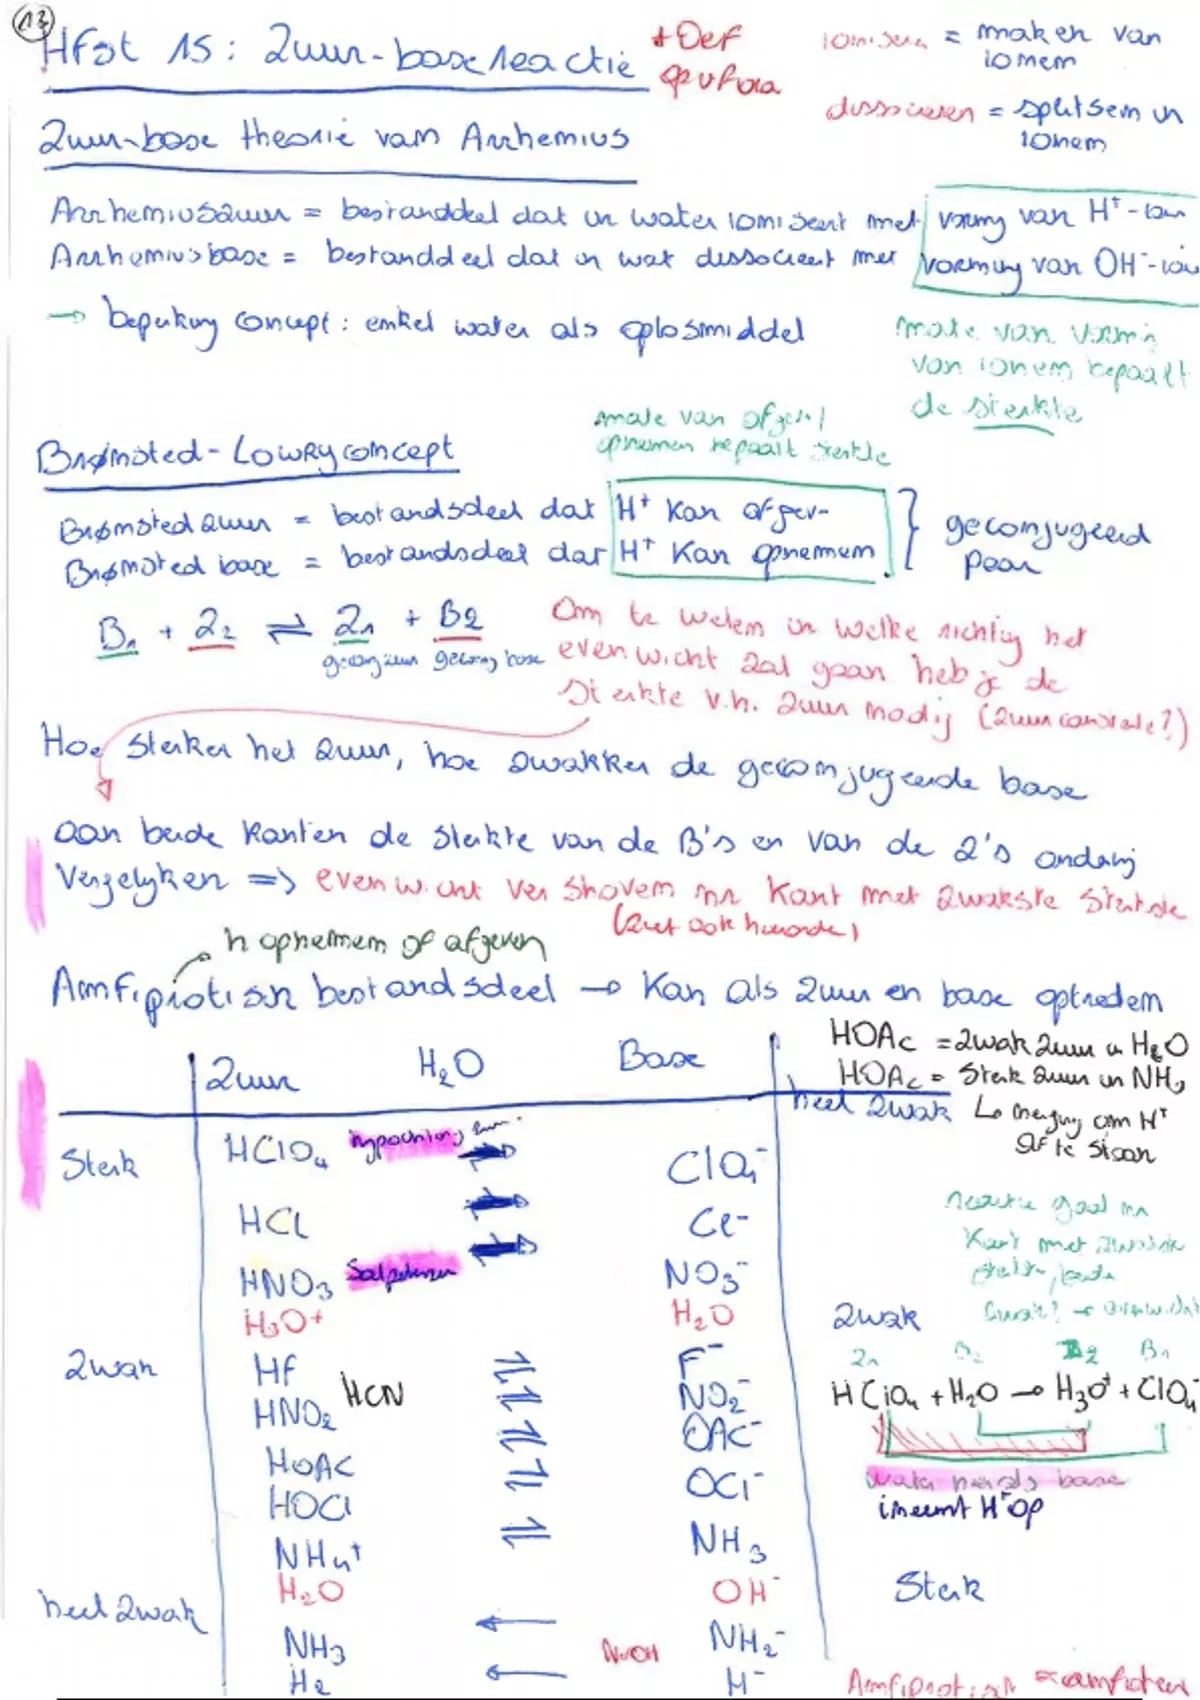 13
Hfst 15: Zuur-base reactie
+ Def
ioniseren = maken van
ionen
dissociëren = splitsen in
ionen
Zuur-base theorie van Arrhenius
Arrheniuszuur = bestanddeel dat in water ioniseert met vorming van H⁺-ion
Arrheniusbase = bestanddeel dat in wat dissocieert met vorming van OH⁻-ion
→ beperking concept: enkel water als oplosmiddel
mate van vormin
van ionen bepaalt
de sterkte
mate van afgev/
opnemen bepaalt sterkte
Brønsted-Lowry concept
Brønsted zuur = bestandsdeel dat H⁺ kan afgev-
Brønsted base = bestandsdeel dat H⁺ kan opnemen
} geconjugeerd
paar
B₁ + Z₂ ⇌ Z₁ + B₂
geconj zuur geconj base
Om te weten in welke richting het
evenwicht zal gaan heb je de
sterkte v.h. zuur nodig (zuurconstante?)
Hoe sterker het zuur, hoe zwakker de geconjugeerde base
aan beide kanten de sterkte van de B's en van de Z's onderlij
Vergelyken => evenwicht verschoven nr kant met zwakste sterkte
(ziet ook hieronder)
h opnemen of afgeven
Amfiprotisch bestandsdeel → kan als zuur en base optreden
HOAc = zwak zuur in H₂O
HOAc = sterk zuur in NH₃
↳ neiging om H⁺
af te staan
Zuur H₂O Base
heel zwak
Sterk HClO₄ ⇌ ClO₄⁻
HCl ⇌ Cl⁻
HNO₃ Salpeterzuur ⇌ NO₃⁻
H₃O⁺ H₂O
reactie gaat nr
kant met zwakste
zwak
Zwak Hf ⇌ F⁻
HCN
HNO₂ ⇌ NO₂⁻
HOAC ⇌ OAC⁻
HOCl ⇌ OCl⁻
NH₄⁺ ⇌ NH₃
H₂O OH⁻
Z₁ B₂ Z₂ B₁
HClO₄ + H₂O → H₃O⁺ + ClO₄⁻
water hier als base
neemt H⁺ op
Sterk
heel zwak
NH₃ ← NH₂⁻
NaOH
H₂ ← H⁻
Amfiprotisch = amfoteer